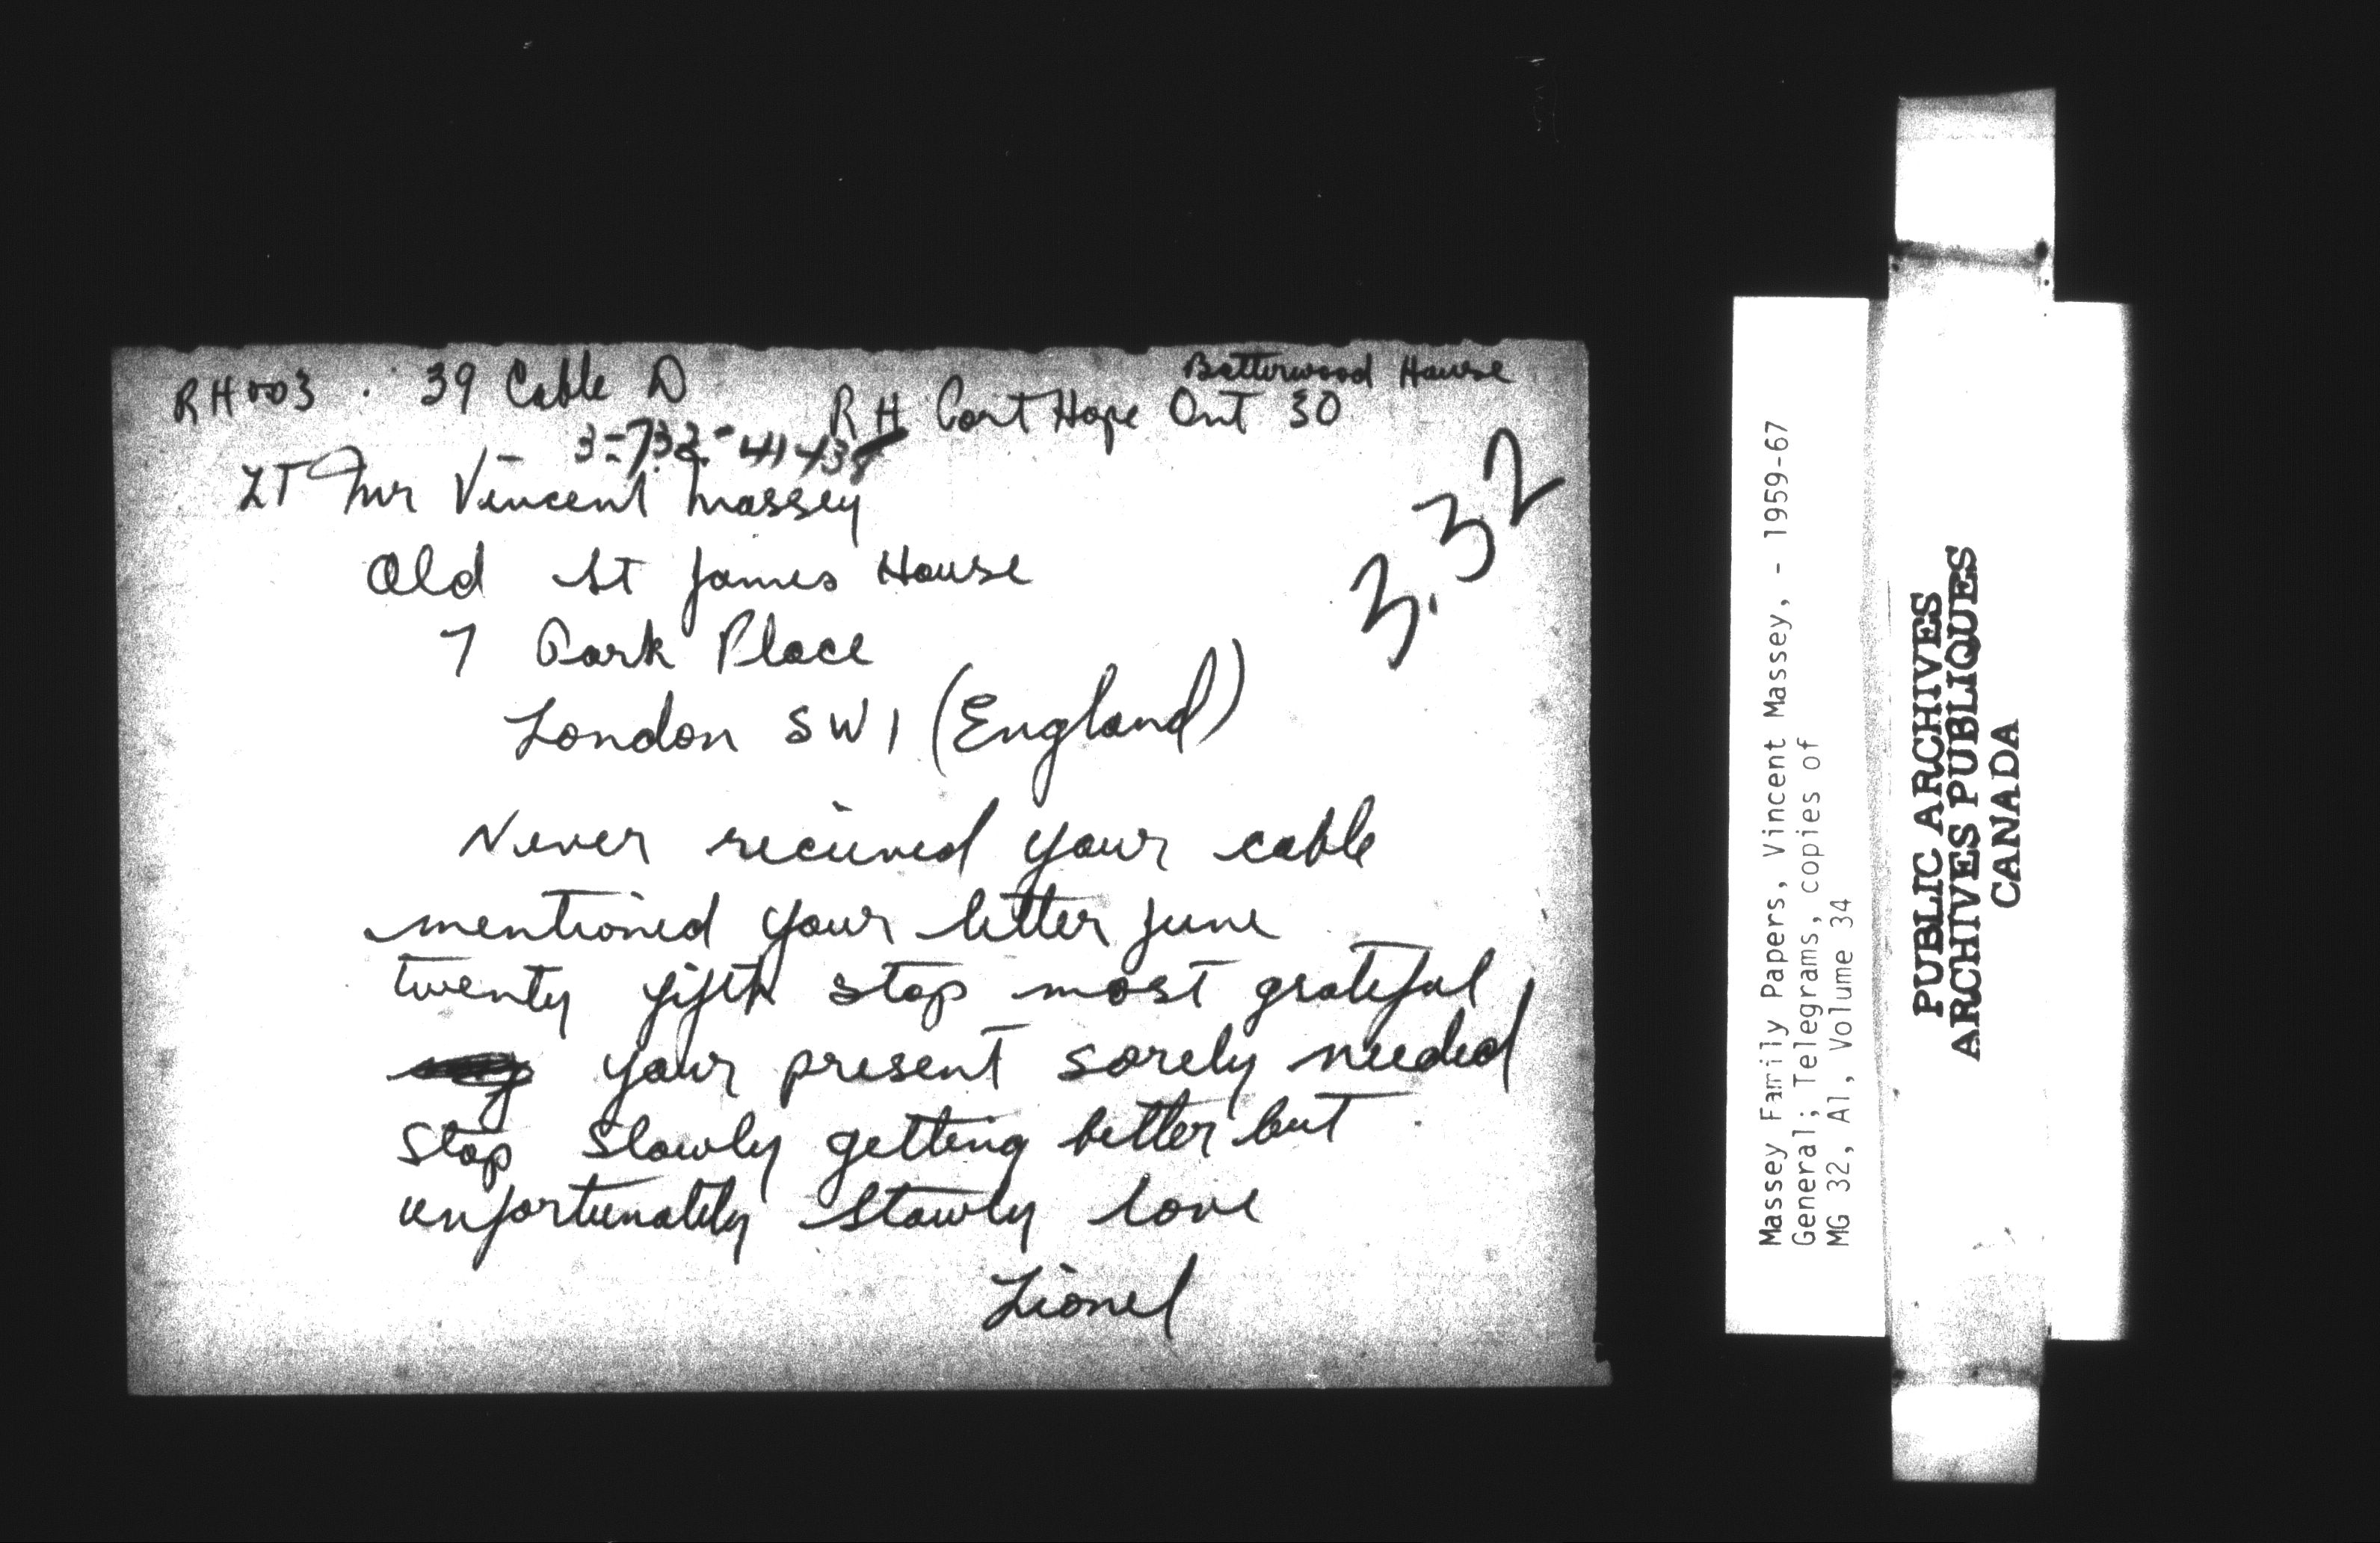 Batterwood House
RH003 . 39 Cable D RH Port Hope Ont 30
LT Mr Vincent Massey
3.32
Old St James House
7 Park Place
London SW1 (England)
Never recieved your cable
mentioned your letter June
twenty fifth stop most grateful
your present sorely needed
stop slowly getting better but
unfortunately slowly love
Lionel
Massey Family Papers, Vincent Massey, - 1959-67
General; Telegrams, copies of
MG 32, A1, Volume 34
PUBLIC ARCHIVES
ARCHIVES PUBLIQUES
CANADA